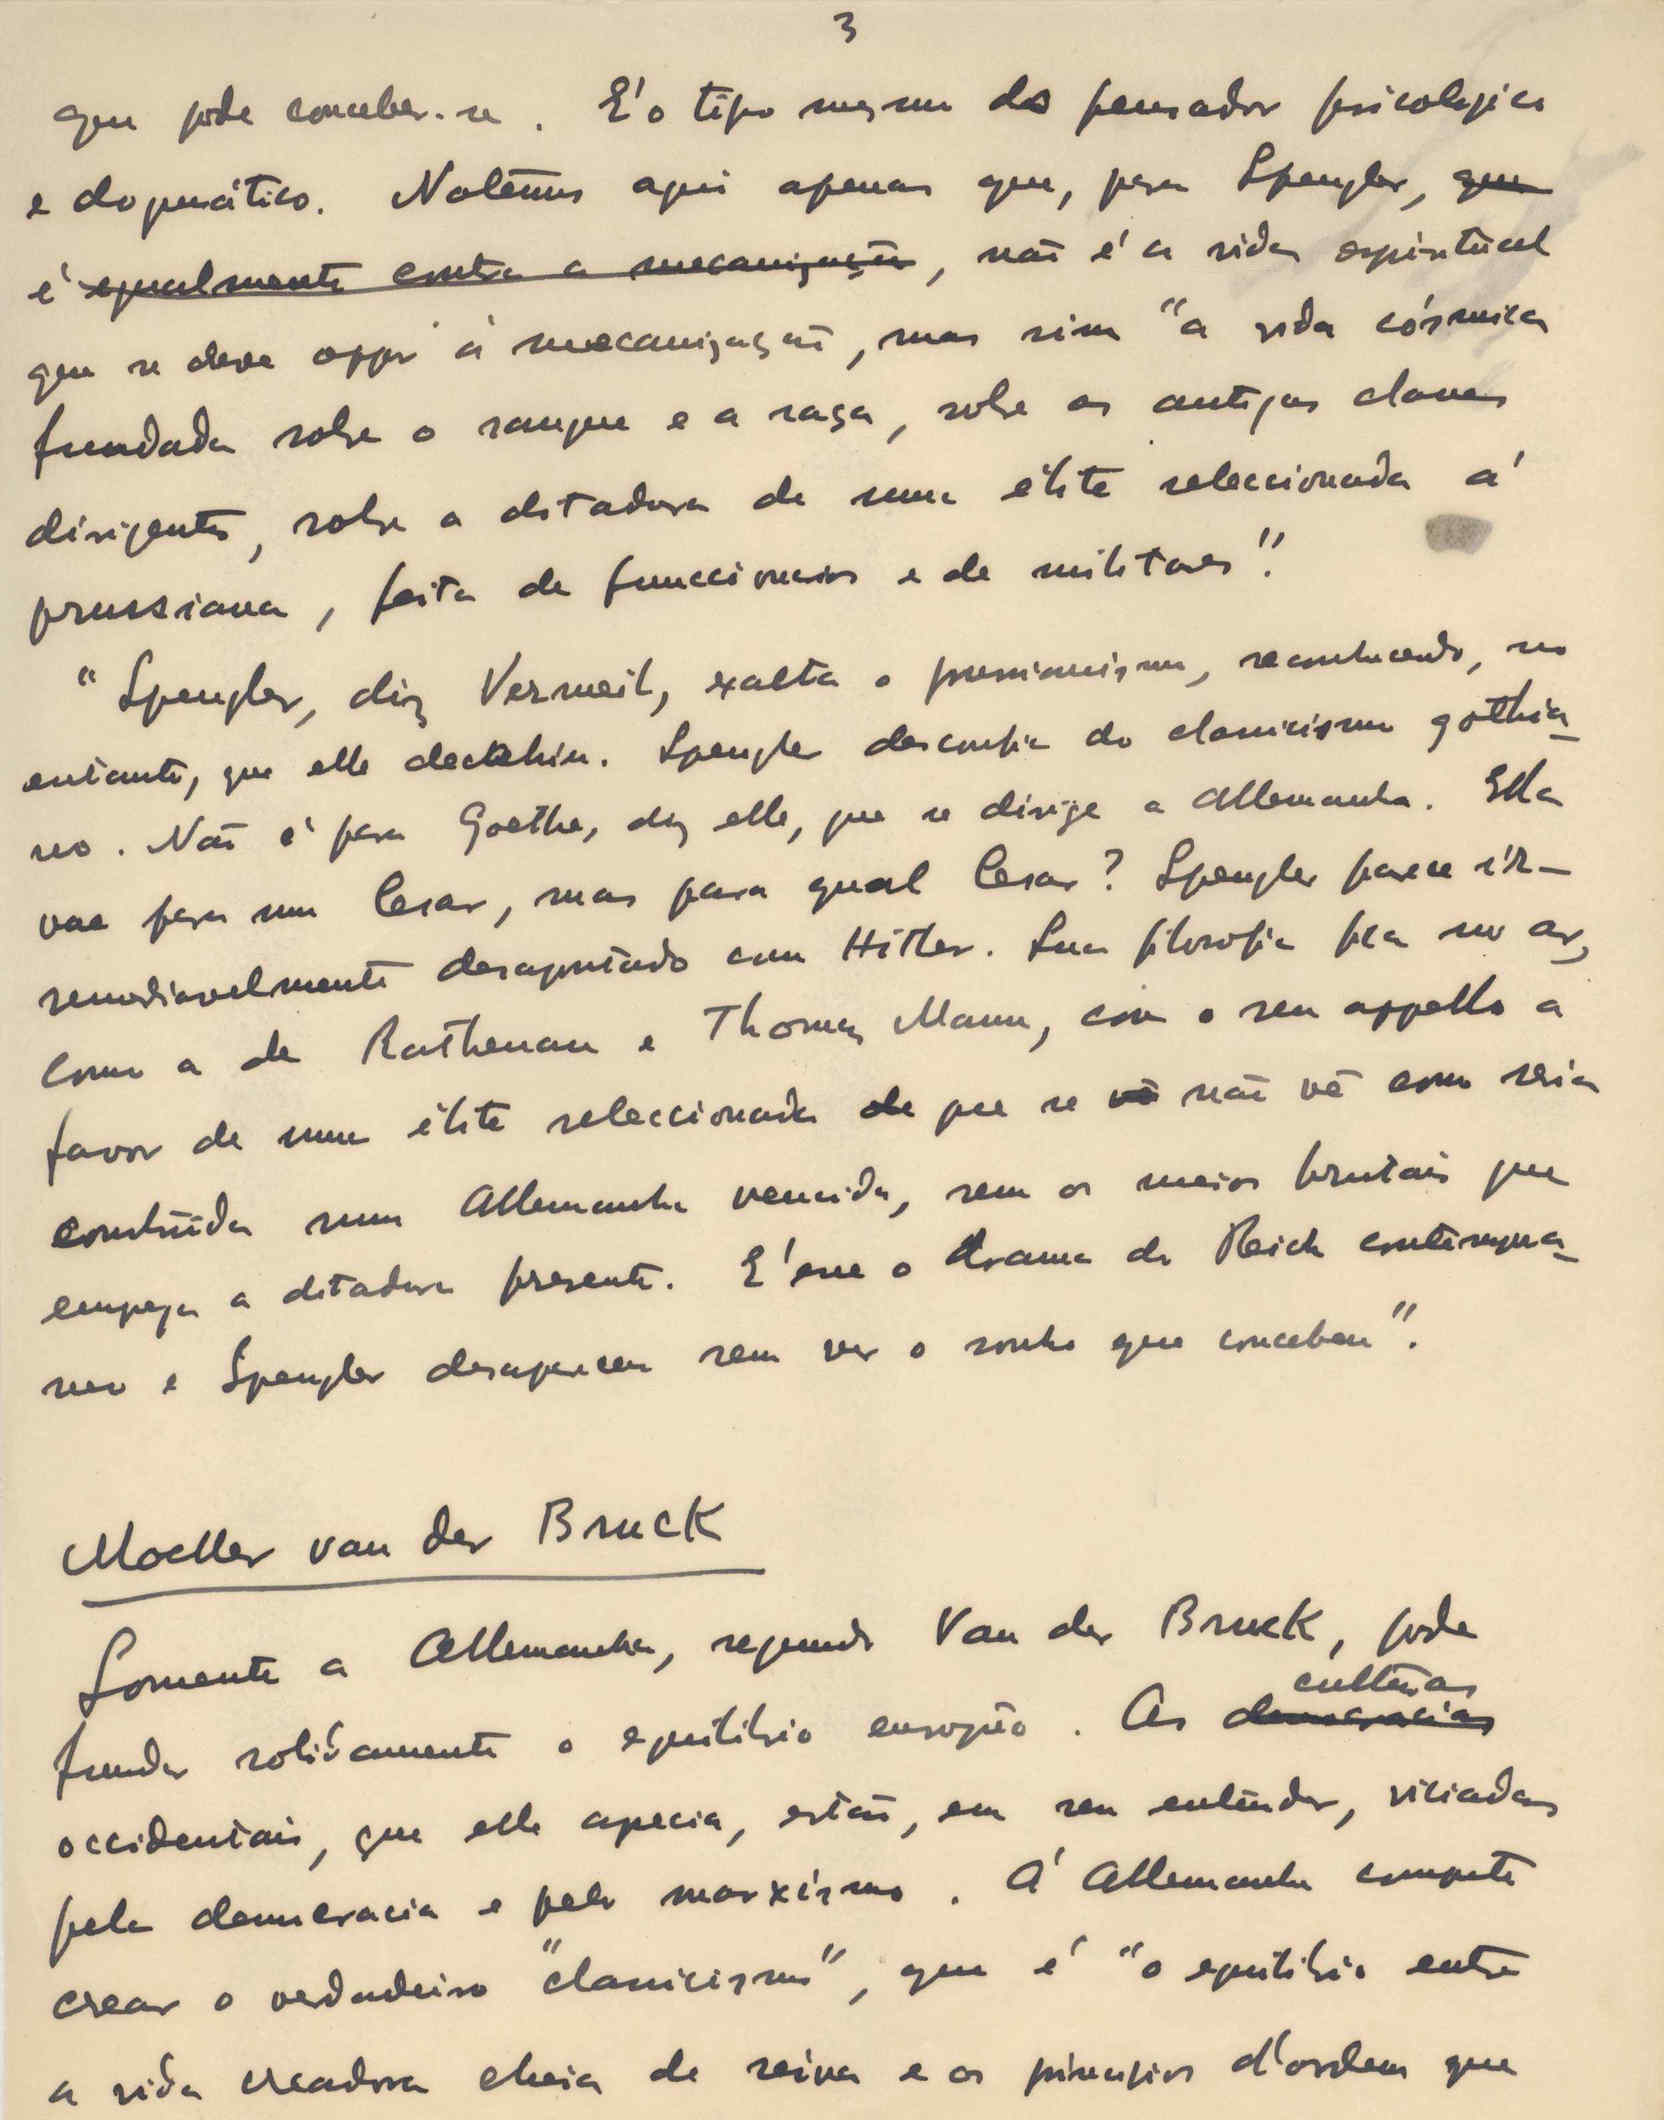 3
que póde conceber-se. E' o tipo mesmo do pensador psicologico
e dogmático. Notemos aqui apenas que, para Spengler, que
é egualmente contra a mecanização, não é a vida espiritual
que se deve oppôr á mecanização, mas sim "a vida cósmica
fundada sobre o sangue e a raça, sobre as antigas classes
dirigentes, sobre a ditadura de uma élite seleccionada á
prussiana, feita de funccionarios e de militares".
"Spengler, diz Vermeil, exalta o prussianismo, reconhecendo, no
entanto, que elle declinou. Spengler desconfia do classicismo gothia-
no. Não é para Goethe, diz elle, que se dirige a Allemanha. Ella
vae para um Cesar, mas para qual Cesar? Spengler parece ir-
remediavelmente desapontado com Hitler. Sua filosofia fica no ar,
como a de Rathenau e Thomas Mann, com o seu appello a
favor de uma élite seleccionada de que se vê não vê como seria
construida numa Allemanha vencida, sem os meios brutais que
emprega a ditadura presente. E' esse o drama do Reich contempora-
neo e Spengler desapareceu sem ver o sonho que concebeu".
Moeller van der Bruck
Somente a Allemanha, segundo Van der Bruck, póde
fundar solidamente o equilibrio europeu. As democracias culturas
occidentais, que elle aprecia, estão, em seu entender, viciadas
pela democracia e pelo marxismo. Á Allemanha compete
crear o verdadeiro "classicismo", que é "o equilibrio entre
a vida creadora cheia de seiva e os principios d'ordem que